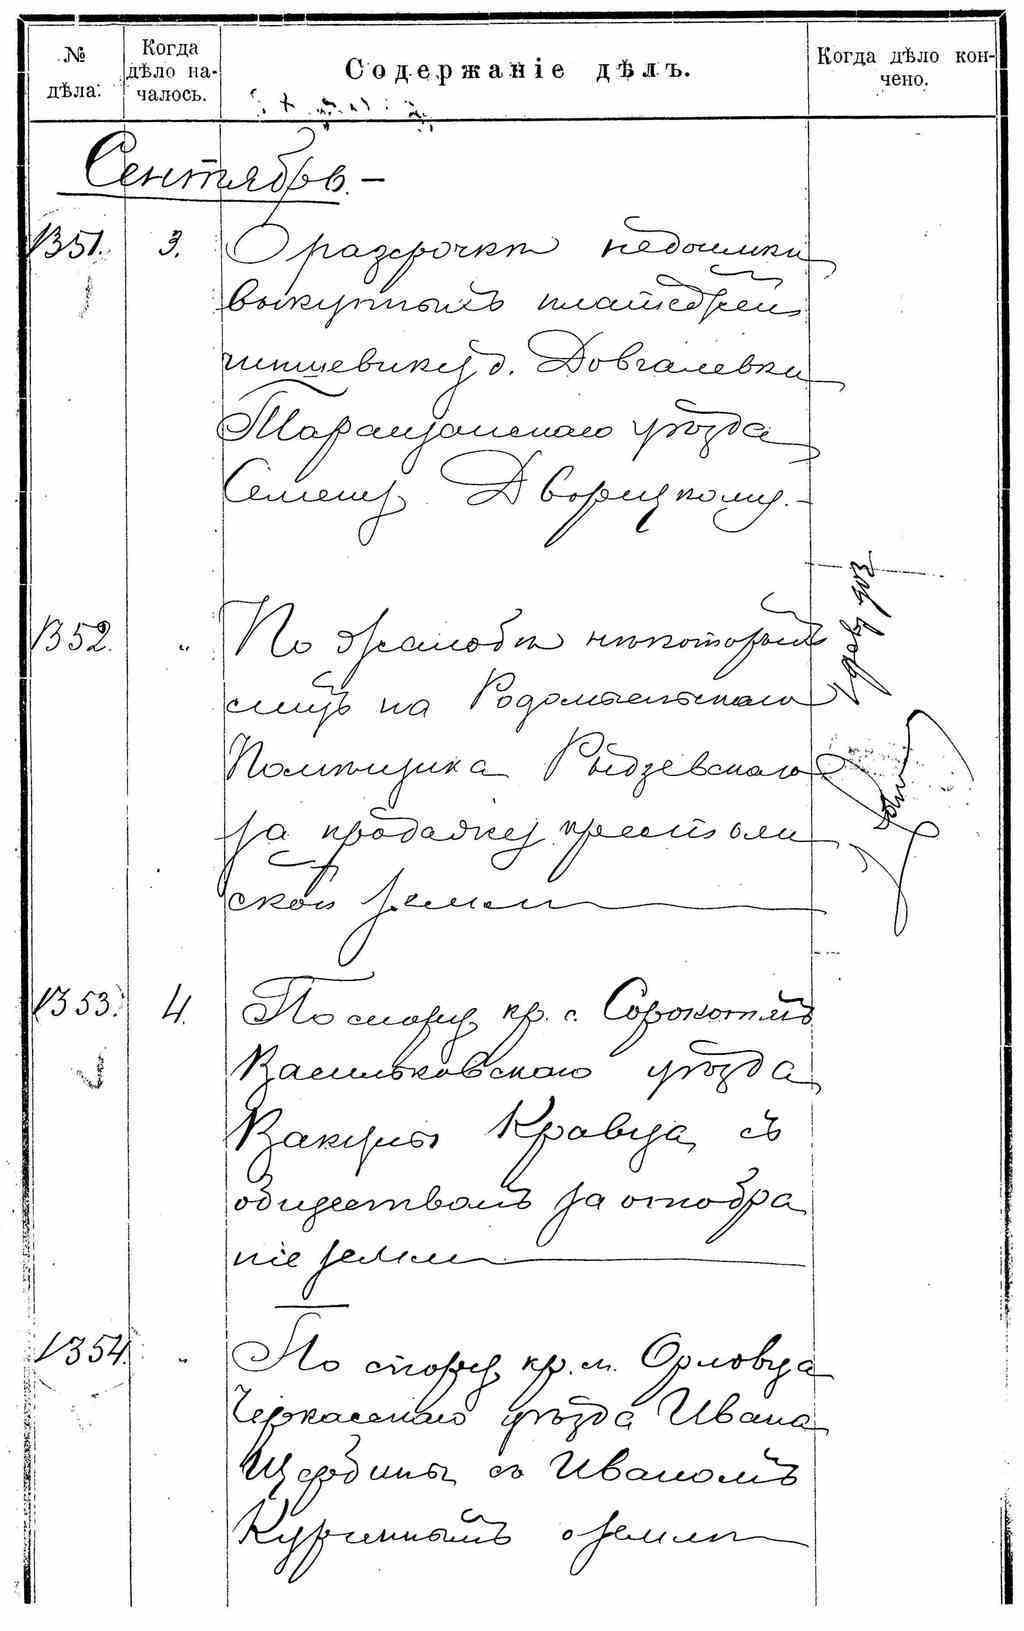 № дѣла.
Когда дѣло началось.
Содержаніе дѣлъ.
Когда дѣло кончено.
Сентябрь.–
1351. 3. О разсрочкѣ недоимки
выкупныхъ платежей
чиншевику д. Довгалевки
Таращанскаго уѣзда
Семену Дворецкому.–
1352. „ По жалобѣ нѣкоторыхъ
лицъ на Радомысльскаго
Помѣщика Рыдзевскаго
за продажу крестьян
ской земли
1353. 4. По спору кр. с. Сорокотягъ
Васильковскаго уѣзда
Вакулы Кравца съ
обществомъ за отобра
ніе земли
1354. „ По спору кр. м. Орловца
Черкасскаго уѣзда Ивана
Щербины съ Иваномъ
Куриннымъ о землѣ